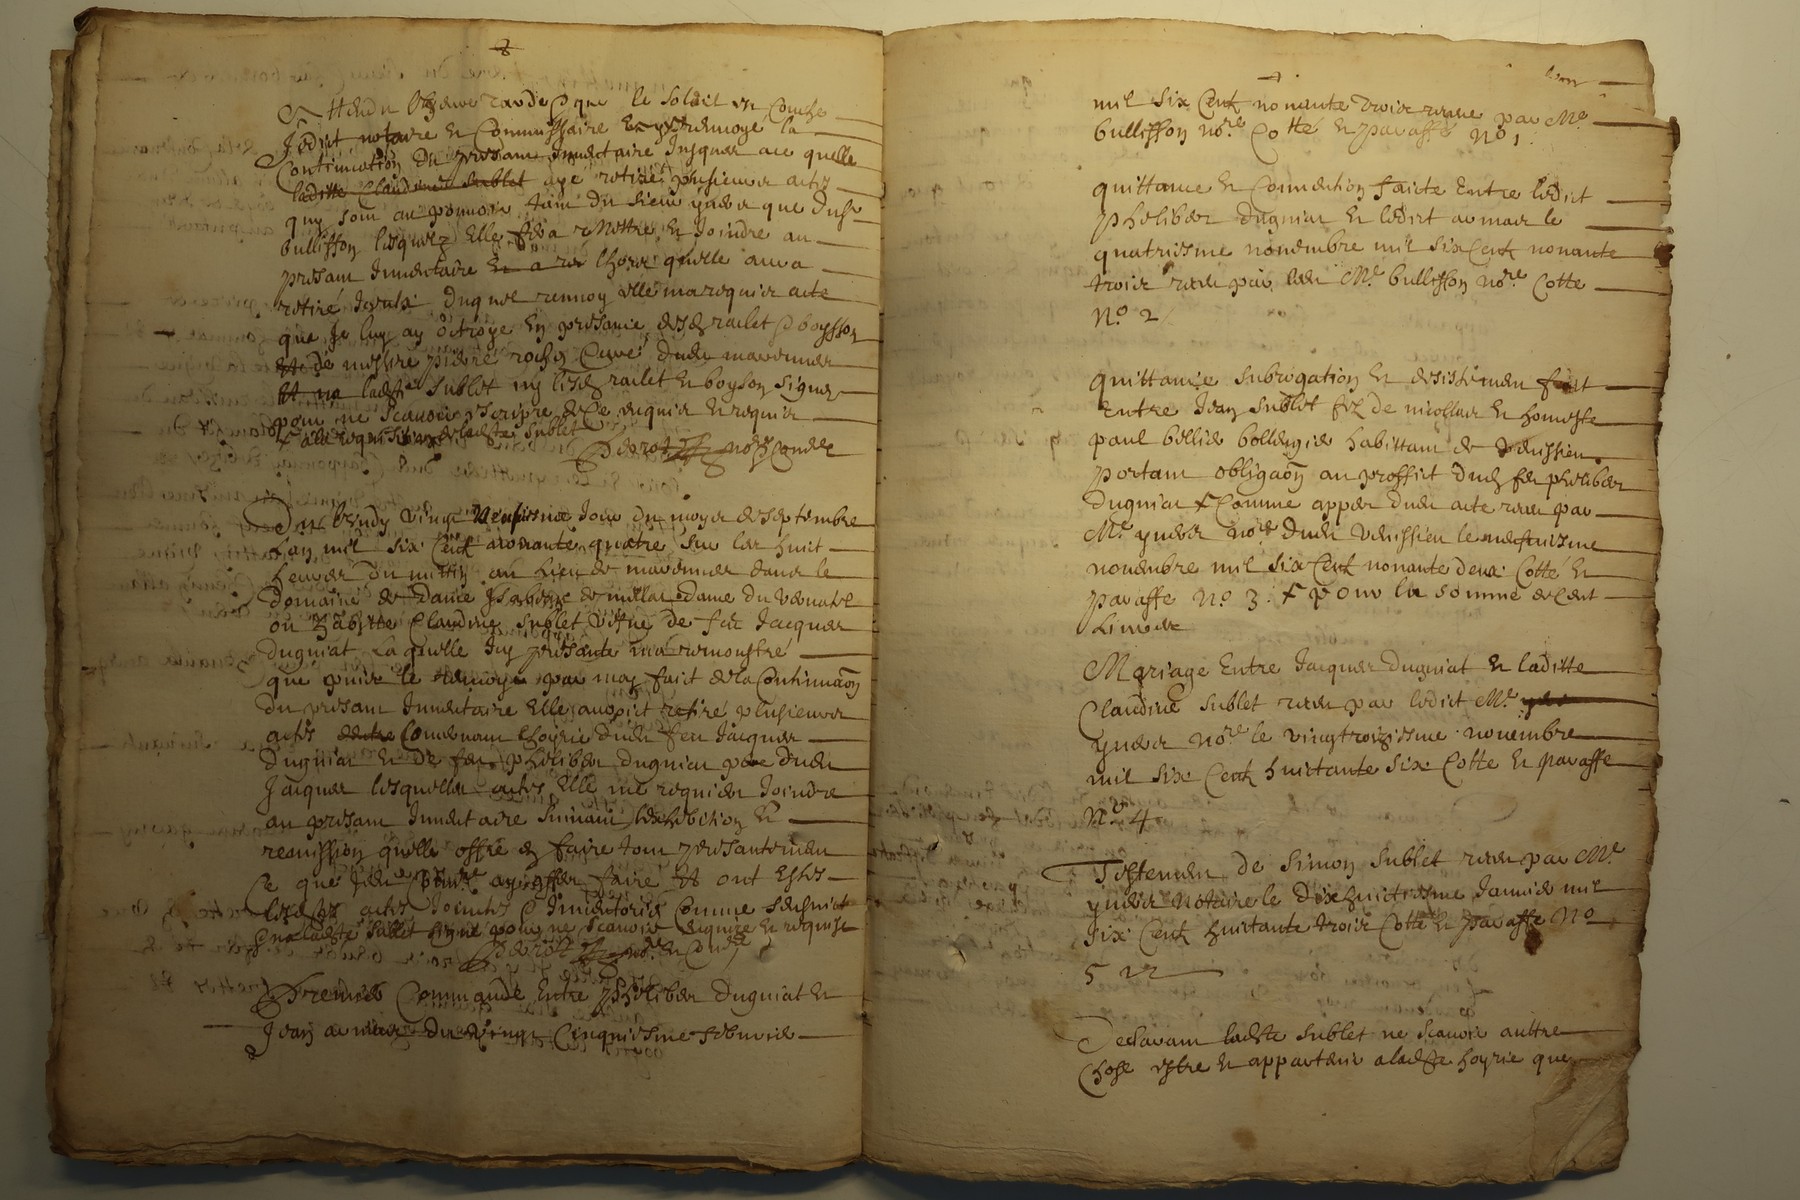 Attendu lheure tarde & que le soleil se couche
Jedict notaire et Commissaire ay renvoyé la
Continuation du presant Inventaire Jusques a ce quelle
laditte Claudine Sublet aye retiré plusieurs actes
quy sont au pouvoir tant du sieur yvera que dusr
bullisson lesquelz Elle fera remettre et Joindre au
presant Inventaire lhors quelle aura
retiré Iceulx duquel renvoy elle ma requier acte
que Je luy ay octroyé En presance desd railet & boysson
de messire pierre roch Curé dud marennes
ladte Sublet ny lesd railet et boyson signer
pour ne scavoir escripre de ce enquis et requis
a la requisition de ladte Sublet
derot nore Comre
Du lundy vingt septiesme Jour du moys de septembre
Lan mil six Cent nonante quatre sur les huit
heures du mattin au lieu de marennes dans le
domaine de dame Isabeau de millar dame du vernatel
ou habitte Claudine Sublet vefve de feu Jacques
duguiat Laquelle Icy presante ma remonstré
que puis le renvoy par moy faict de la Continuaon
du presant Inventaire Elle auroict retiré plusieurs
actes Concernant lhoyrie dud feu Jacques
Duguiat et de feu phelibert duguiat pere dud
Jacques lesquelles actes Elle me requiert Joindre
au presant Inventaire suivant lexhibition et
remission quelle offre en faire tout presantement
Ce que Jedt Comre ay offert faire et ont Estes
lesdtes actes Jointes & Inventoriés Comme sensuict
Et na ladte Sublet signé pour ne scavoir enquise et requise
derot nore et Comre
Premier Commande Entre Phelibert duguiat et
Jean armaer du vingt Cinquiesme febvrier
mil six Cent nonante troix receue par Me
bullisson nore Cotté et paraffé No 1
quittance et Convention faicte Entre ledict
phelibert duguiat et ledict armaer le
quatriesme novembre mil six Cent nonante
troix receu par led Me bullisson nore Cotte
No 2
quittance subrogation et desistemen faict
Entre Jean Sublet filz de nicollas et honneste
paul bellier bollengier habittant de venissieu
portant obligaon au proffict dud feu phelibert
Duguiat Comme appert dud acte receu par
Me yvera nore dud venissieu le
novembre mil six Cent nonante deux Cotté et
paraffe No 3 pour la somme de Cent
Livres
Mariage Entre Jacques duguiat et laditte
Claudine Sublet receu par ledict Me
yvera nore le vingtroiziesme novembre
mil six Cent huictante six Cotte et paraffe
No 4
Testement de Simon Sublet receu par Me
yvera Notaire le dixhuictiesme Janvier mil
six Cent huictante troix Cotte et paraffe No
5
Declarant ladte Sublet ne scavoir aultre
Chose estre et appartenir a ladte hoyrie que